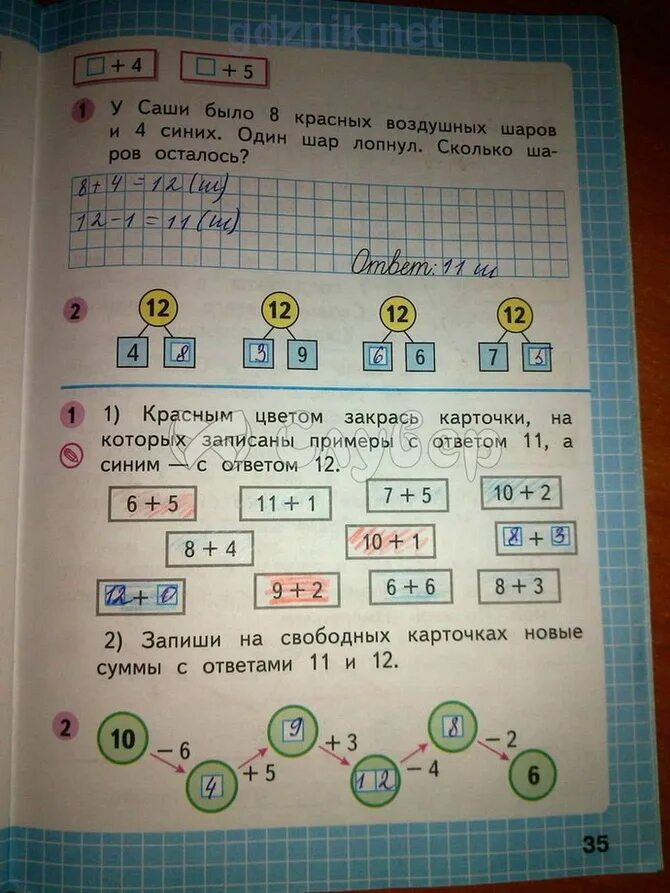 gdznik.net
□ + 4 □ + 5
1 У Саши было 8 красных воздушных шаров
и 4 синих. Один шар лопнул. Сколько ша-
ров осталось?
8 + 4 = 12 (ш)
12 - 1 = 11 (ш)
Ответ: 11 ш
2 12 12 12 12
4 8 3 9 6 6 7 5
1 1) Красным цветом закрась карточки, на
которых записаны примеры с ответом 11, а
синим — с ответом 12.
6 + 5 11 + 1 7 + 5 10 + 2
8 + 4 10 + 1 8 + 3
12 + 0 9 + 2 6 + 6 8 + 3
2) Запиши на свободных карточках новые
суммы с ответами 11 и 12.
2 10 – 6 4 + 5 9 + 3 12 – 4 8 – 2 6
35